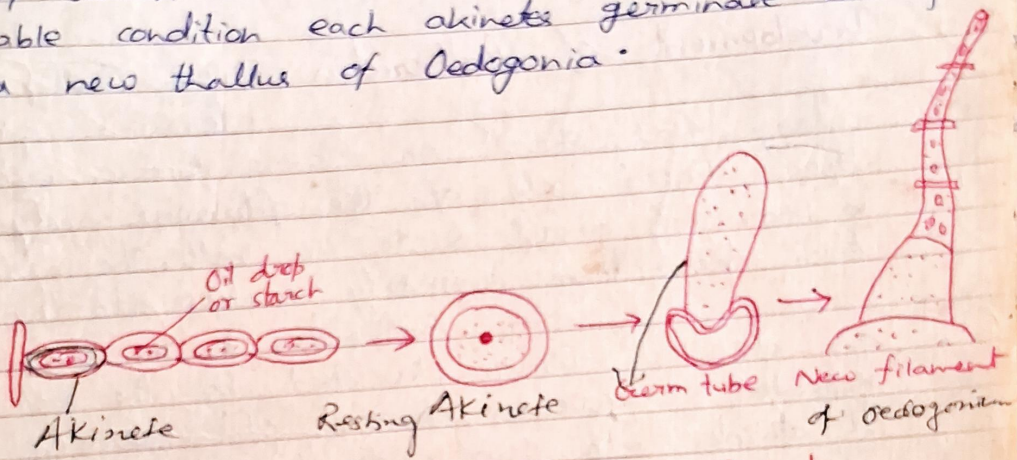 able condition each akinetes germinate
new thallus of Oedogonia.
Oil drop
or starch
Akinete
Resting Akinete
Germ tube
New filament
of oedogonium